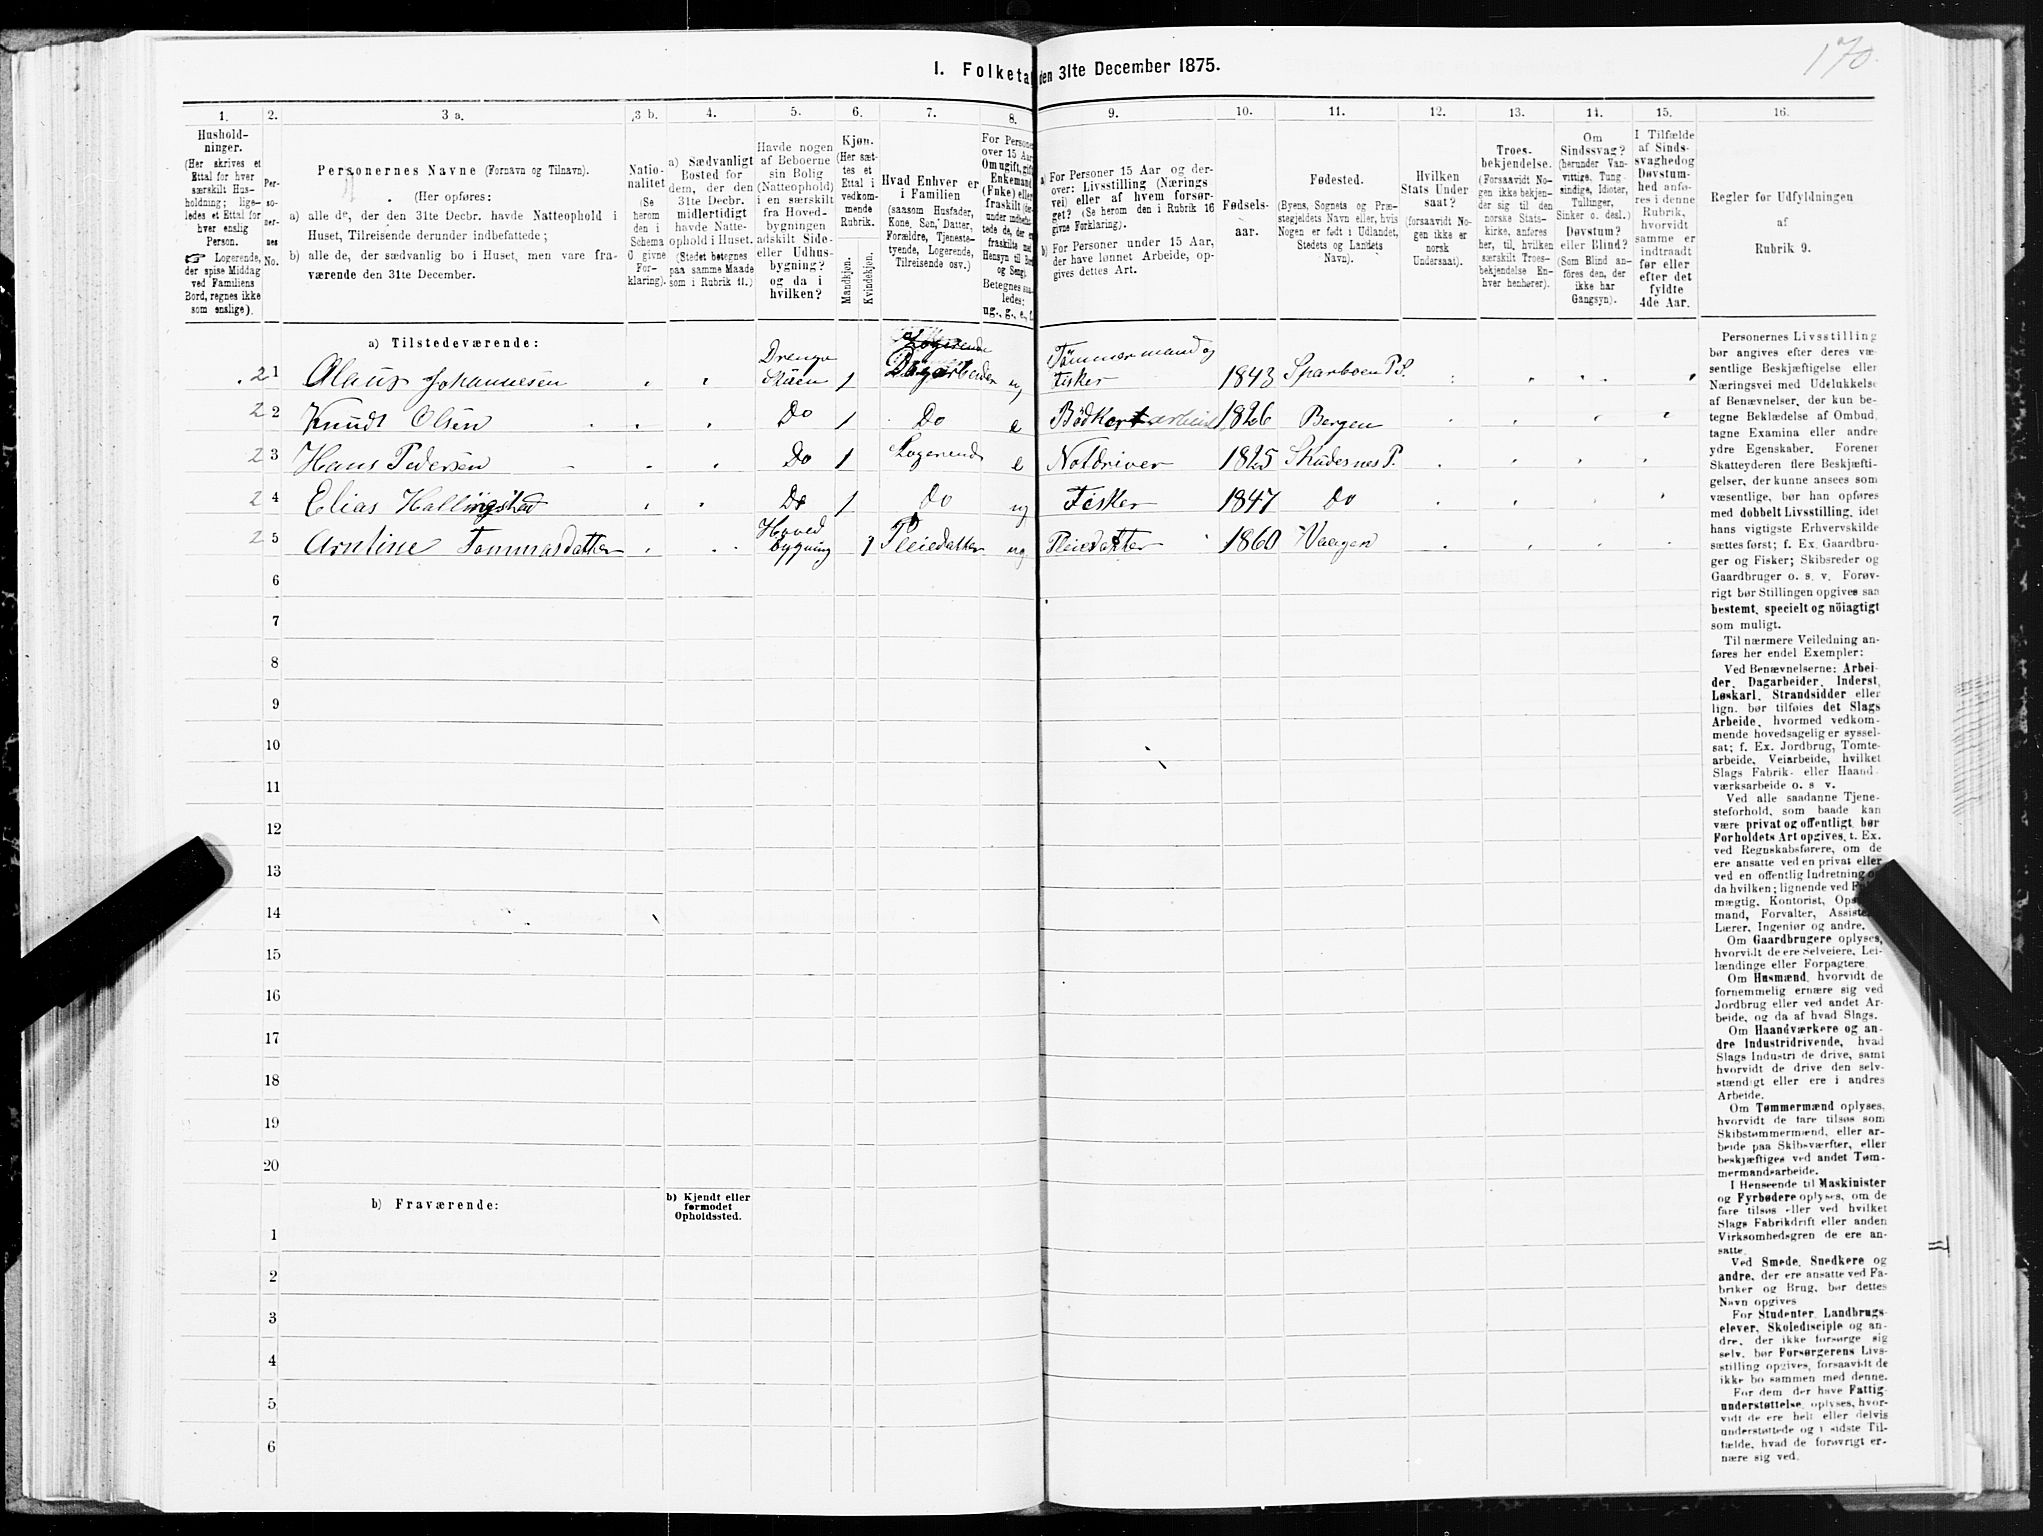 170.
I. Folketal den 31te December 1875.
1. 2. 3 a. 3 b. 4. 5. 6. 7. 8. 9. 10. 11. 12. 13. 14. 15. 16.
Hushold-
ninger.
(Her skrives et
Ettal for hver
særskilt Hus-
holdning; lige-
ledes et Ettal for
hver enslig
Person.
☞ Logerende,
der spise Middag
ved Familiens
Bord, regnes ikke
som enslige).
Per-
so-
ner-
nes
No.
Personernes Navne (Fornavn og Tilnavn).
(Her opføres:
a) alle de, der den 31te Decbr. havde Natteophold i
Huset, Tilreisende derunder indbefattede;
b) alle de, der sædvanlig bo i Huset, men vare fra-
værende den 31te December.
Natio-
nalitet
(Se
herom
den i
Schema
0 givne
For-
klaring).
a) Sædvanligt
Bosted for
dem, der den
31te Decbr.
midlertidigt
havde Natte-
ophold i Huset.
(Stedet betegnes
paa samme Maade
som i Rubrik 11.)
Havde nogen
af Beboerne
sin Bolig
(Natteophold)
i en særskilt
fra Hoved-
bygningen
adskilt Side-
eller Udhus-
bygning?
og da i
hvilken?
Kjøn.
(Her sæt-
tes et
Ettal i
vedkom-
mende
Rubrik.
Mandkjøn.
Kvindekjøn.
Hvad Enhver er
i Familien
(saasom Husfader,
Kone, Søn, Datter,
Forældre, Tjeneste-
tyende, Logerende,
Tilreisende osv.)
For Personer
over 15 Aar
Om ugift, gift,
Enkemand
(Fnke) eller
fraskilt
ug., g., e., f.
a) For Personer 15 Aar og der-
over: Livsstilling (Nærings
vei) eller af hvem forsør-
get? (Se herom den i Rubrik 16
givne Forklaring).
b) For Personer under 15 Aar,
der have lønnet Arbeide, op-
gives dettes Art.
Fødsels-
aar.
Fødested.
(Byens, Sognets og Præ-
stegjeldets Navn eller, hvis
Nogen er født i Udlandet,
Stedets og Landets
Navn).
Hvilken
Stats Under
saat?
(forsaavidt No-
gen ikke er
norsk
Undersaat).
Troes-
bekjendelse.
(Forsaavidt No-
gen ikke bekjen-
der sig til den
norske Stats-
kirke, anføres
her, til, hvilken
særskilt Troes-
bekjendelse En-
hver henhører).
Om
Sindssvag?
(herunder Van-
vittige, Tung-
sindige, Idioter,
Tullinger,
Sinker o. desl.)
Døvstum?
eller Blind?
(Som Blind an-
føres den, der
ikke har
Gangsyn).
I Tilfælde
af Sinds-
svaghedog
Døvstum-
hed anfø-
res i denne
Rubrik,
hvorvidt
samme er
indtraadt
før eller
efter det
fyldte
4de Aar.
Regler for Udfyldningen
af
Rubrik 9.
a) Tilstedeværende:
2 1 Olaus Johannesen Drenge Stuen 1 Logerende Dagarbeider ug Tömmermand og Fisker 1843 Sparboen Pd.
2 2 Knudt Olsen Do 1 Do e Bödker arbeide 1826 Bergen
2 3 Hans Pedersen Do 1 Logerende e Notdriver 1825 Skudesnes P.
2 4 Elias Hallingstad Do 1 Do ug Fisker 1847 Do
2 5 Arntine Tommasdatter Hoved bygning 1 Pleiedatter ug Pleiedatter 1860 Vaagen
6
7
8
9
10
11
12
13
14
15
16
17
18
19
20
b) Fraværende:
b) Kjendt eller
formodet
Opholdssted.
1
2
3
4
5
6
Personernes Livsstilling
bør angives efter deres væ-
sentlige Beskjæftigelse eller
Næringsvei med Udelukkelse
af Benævnelser, der kun be-
tegne Beklædelse af Ombud,
tagne Examina eller andre
ydre Egenskaber. Forener
Skatteyderen flere Beskjæfti-
gelser, der kunne ansees som
væsentlige, bør han opføres
med dobbelt Livsstilling, idet
hans vigtigste Erhvervskilde
sættes først; f. Ex. Gaardbru-
ger og Fisker; Skibsreder og
Gaardbruger o. s. v. Forøv-
rigt bør Stillingen opgives saa
bestemt, specielt og nöiagtigt
som muligt.
Til nærmere Veiledning an-
føres her endel Exempler:
Ved Benævnelserne: Arbei-
der, Dagarbeider, Inderst,
Løskarl, Strandsidder eller
lign. bør tilføies det Slags
Arbeide, hvormed vedkom-
mende hovedsagelig er syssel-
sat; f. Ex. Jordbrug, Tomte-
arbeide, Veiarbeide, hvilket
Slags Fabrik- eller Haand-
værksarbeide o. s. v.
Ved alle saadanne Tjene-
steforhold, som baade kan
være privat og offentligt, bør
Forholdets Art opgives, t. Ex.
ved Regnskabsførere, om de
ere ansatte ved en privat eller
ved en offentlig Indretning og
da hvilken; lignende ved
mægtig, Kontorist, Ops
mand, Forvalter, Assistent,
Lærer, Ingeniør og andre.
Om Gaardbrugere oplyses,
hvorvidt de ere Selveiere, Lei-
lændinge eller Forpagtere.
Om Husmænd, hvorvidt de
fornemmelig ernære sig ved
Jordbrug eller ved andet Ar-
beide, og da af hvad Slags.
Om Haandværkere og an-
dre Industridrivende, hvad
Slags Industri de drive, samt
hvorvidt de drive den selv-
stændigt eller ere i andres
Arbeide.
Om Tømmermænd oplyses,
hvorvidt de fare tilsøs som
Skibstømmermænd, eller ar-
beide paa Skibsværfter, eller
beskjæftiges ved andet Tøm-
mermandsarbeide.
I Henseende til Maskinister
og Fyrbødere oplyses, om de
fare tilsøs eller ved hvilket
Slags Fabrikdrift eller anden
Virksomhedsgren de ere an-
satte.
Ved Smede, Snedkere og
andre, der ere ansatte ved Fa-
briker og Brug, bør dettes
Navn opgives
For Studenter, Landbrugs-
elever, Skoledisciple og an-
dre, der ikke forsørge sig
selv, bør Forsørgerens Livs-
stilling opgives, forsaavidt de
ikke bo sammen med denne.
For dem, der have Fattig-
understøttelse, oplyses, hvor-
vidt de ere helt eller delvis
understøttede og i sidste Til-
fælde, hvad de forøvrigt er-
nære sig ved.